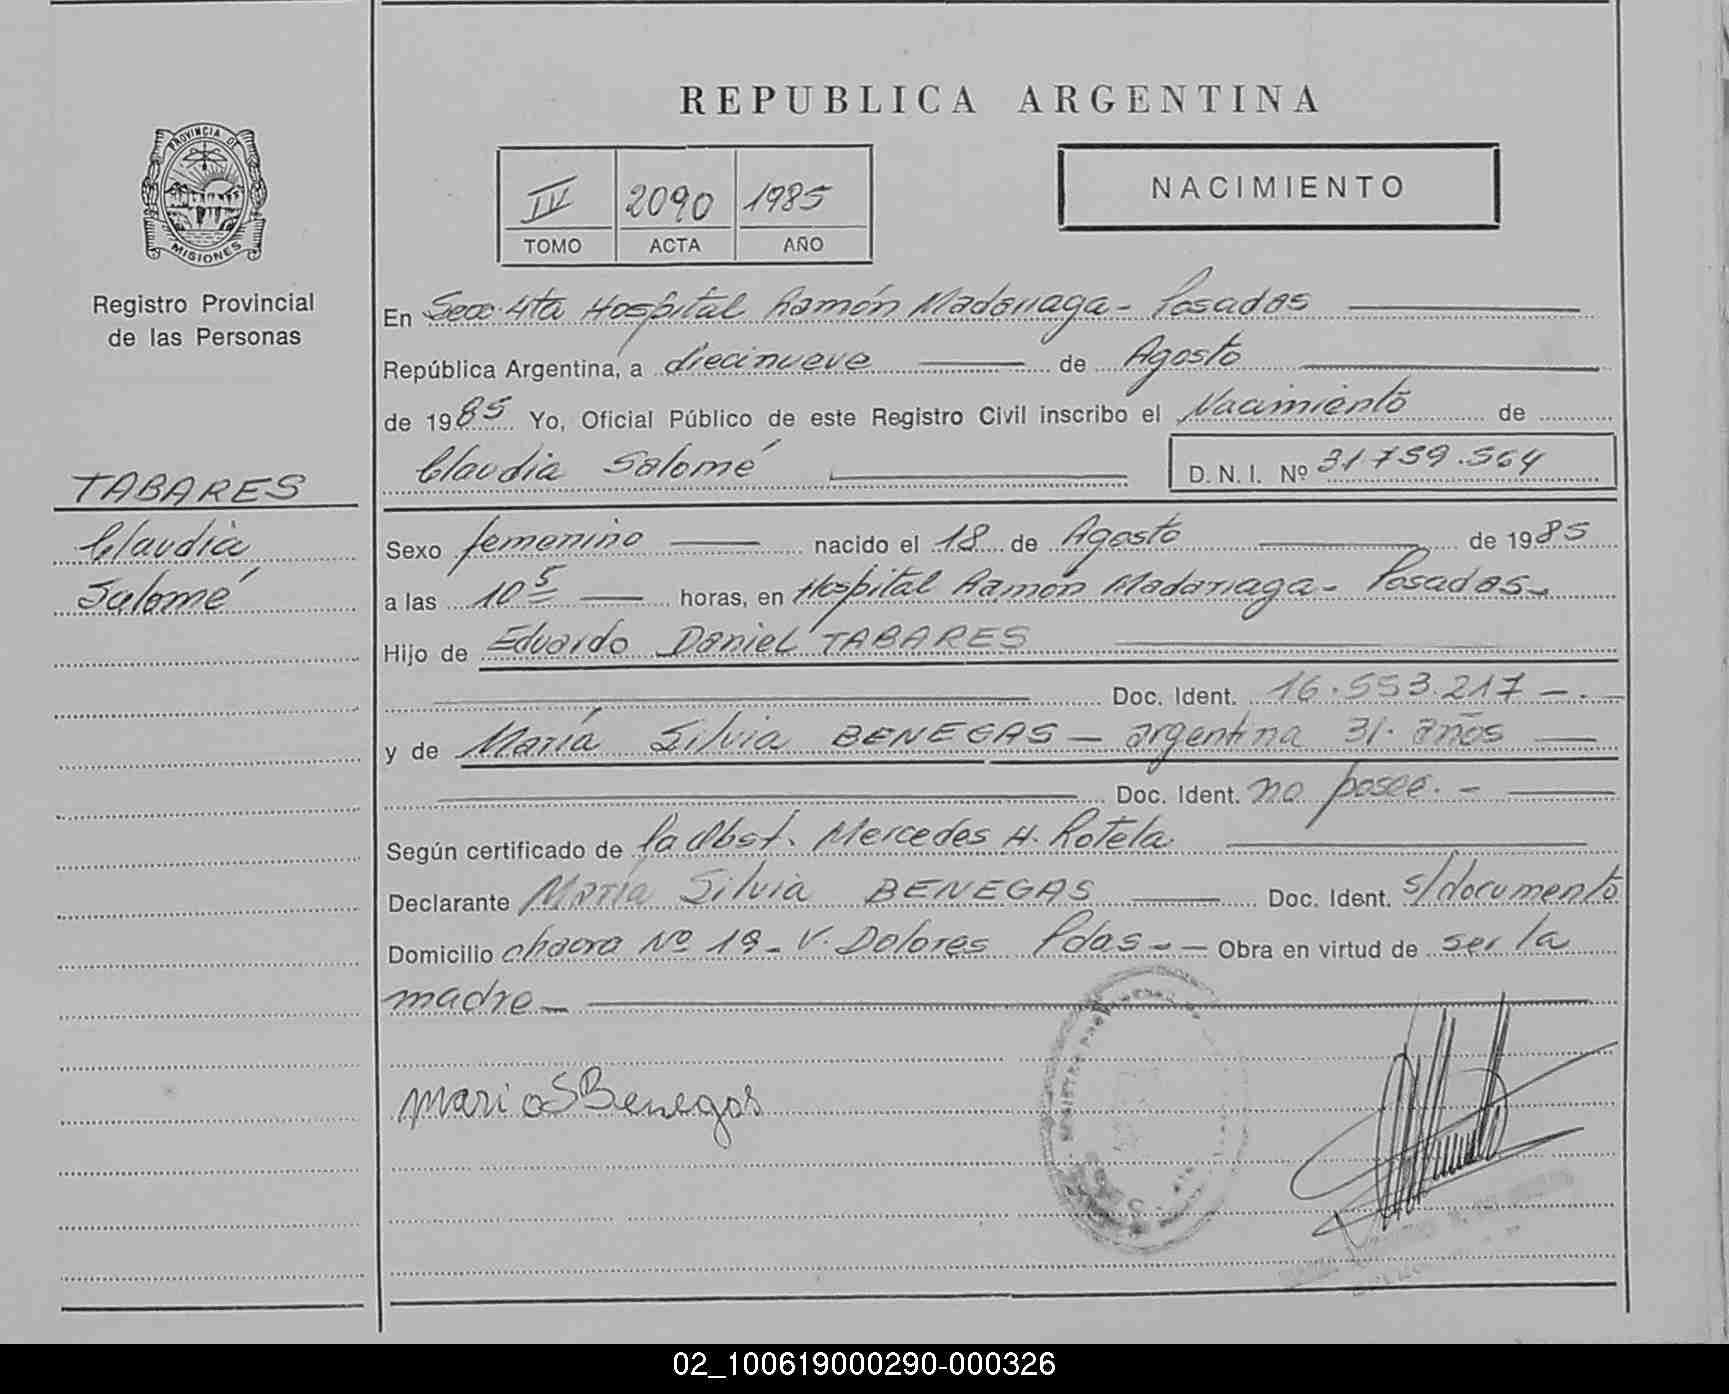 REPUBLICA ARGENTINA
PROVINCIA DE MISIONES
Registro Provincial
de las Personas
IV 2090 1985
TOMO ACTA AÑO
NACIMIENTO
En Secc. 4ta Hospital Ramón Madariaga - Posadas
República Argentina, a diecinueve de Agosto
de 1985 Yo, Oficial Público de este Registro Civil inscribo el Nacimiento de
Claudia Salomé D.N.I. Nº 31.759.564
TABARES
Claudia
Salomé
Sexo femenino nacido el 18 de Agosto de 1985
a las 10 5 horas, en Hospital Ramón Madariaga - Posadas -
Hijo de Eduardo Daniel TABARES
Doc. Ident. 16.553.217 -.-
y de María Silvia BENEGAS - argentina 31. años
Doc. Ident. no posee. -
Según certificado de la Obst. Mercedes H. Rotela
Declarante María Silvia BENEGAS Doc. Ident. s/documento
Domicilio chacra Nº 19 - V. Dolores Pdas - Obra en virtud de ser la
madre -
Maria S Benegas
02_100619000290-000326